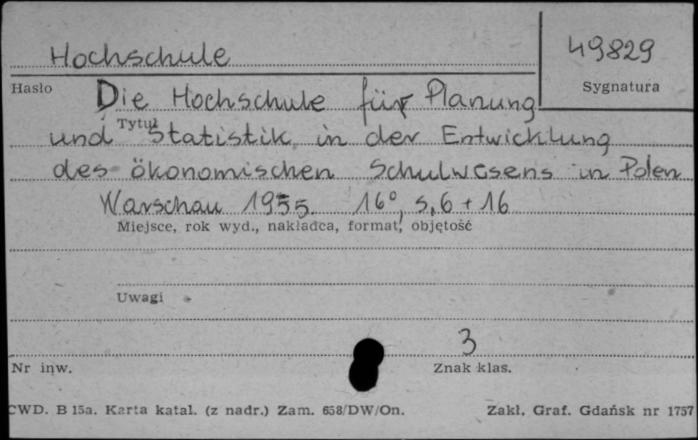 Hochschule
49829
Hasło
Sygnatura
Die Hochschule für Planung
Tytuł
und Statistik in der Entwicklung
des ökonomischen Schulwesens in Polen
Warschau 1955. 16°, S, 6 + 16
Miejsce, rok wyd., nakładca, format, objętość
Uwagi
3
Nr inw.
Znak klas.
CWD. B 15a. Karta katal. (z nadr.) Zam. 658/DW/On.
Zakł. Graf. Gdańsk nr 1757